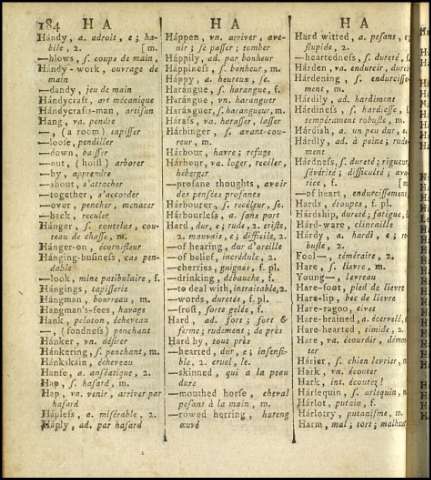 184 H A H A H A
Hándy, a. adroit, e; ha-
bile, 2. [m.
—blows, s. coups de main,
Hándy-work, ouvrage de
main
—dandy, jeu de main
Hándycraft, art mécanique
Hándycraft-man, artisan
Hang, va. pendre
—, (a room) tapisser
—loose, pendiller
—down, baisser
—out, (hoist) arborer
—by, apprendre
—about, s'attacher
—together, s'accorder
—over, pencher, menacer
—back, reculer
Hánger, s. coutelas, cou-
teau de chasse, m.
Hánger-on, écornifleur
Hánging-business, cas pen-
dable
—look, mine patibulaire, f.
Hángings, tapisserie
Hángman, bourreau, m.
Hángman's-fees, havage
Hank, peloton, écheveau
—, (fondness) penchant
Hánker, vn. désirer
Hánkering, s. penchant, m.
Hánkiskain, écheveau
Hanse, a. anséatique, 2.
Hap, s. hasard, m.
Hap, vn. venir, arriver par
hasard
Hápless, a. misérable, 2.
Háply, ad. par hasard
Háppen, vn. arriver, ave-
nir; se passer; tomber
Háppily, ad. par bonheur
Háppiness, s. bonheur, m.
Háppy, a. heureux, se.
Harángue, s. harangue, f.
Harángue, vn. haranguer
Harángu­er, s. harangueur, m.
Hárass, va. harasser, lasser
Hárbinger, s. avant-cou-
reur, m.
Hárbour, havre; refuge
Hárbour, va. loger, recéler,
héberger
—profane thoughts, avoir
des pensées profanes
Hárbourer, s. recéleur, se.
Hárbourless, a. sans port
Hard, dur, e; rude, 2. triste,
2. mauvais, e; difficile, 2.
—of hearing, dur d'oreille
—of belief, incrédule, 2.
—cherries, guignes, f. pl.
—drinking, débauche, f.
—to deal with, intraitable, 2.
—words, duretés, f. pl.
—frost, forte gelée, f.
Hard, ad. fort; fort &
ferme; rudement; de près
Hard by, tout près
—hearted, dur, e; insensi-
ble, 2. cruel, le.
—skinned, qui a la peau
dure
—mouthed horse, cheval
pesant à la main, m.
—rowed herring, hareng
œuvé
Hard witted, a. pesant, e;
stupide, 2.
—heartedness, s. dureté,
Hárden, va. endurcir, durcir
Hárdening, s. endurcisse-
ment, m.
Hárdily, ad. hardiment
Hárdiness, s. hardiesse, f.
tempérament robuste, m.
Hárdish, a. un peu dur, e.
Hárdly, ad. à peine; rude-
ment
Hárdness, s. dureté; rigueur,
sévérité; difficulté; ava-
rice, f. [m.
—of heart, endurcissement,
Hards, étoupes, f. pl.
Hárdship, dureté, fatigue, f.
Hárd-ware, clincaille
Hárdy, a. hardi, e; ro-
buste, 2.
Fool—, téméraire, 2.
Hare, s. lievre, m.
Young—, levreau
Hare-foot, pied de lievre
Hare-lip, bec de lievre
Hare-ragoo, civet
Hare-brained, a. écervelé,
Hare-hearted, timide, 2.
Hare, va. étourdir, démon-
ter
Hárier, s. chien levrier, m.
Hark, vn. écouter
Hark, int. écoutez!
Hárlequin, s. arlequin, m.
Hárlot, putain, f.
Hárlotry, putanisme, m.
Harm, mal; tort; malheur